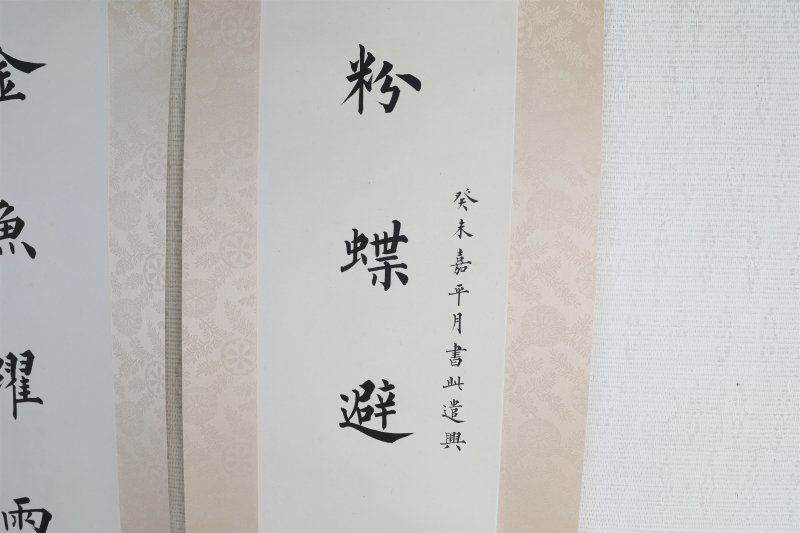 癸未嘉平月書此遣興
粉蝶避
金魚躍雨